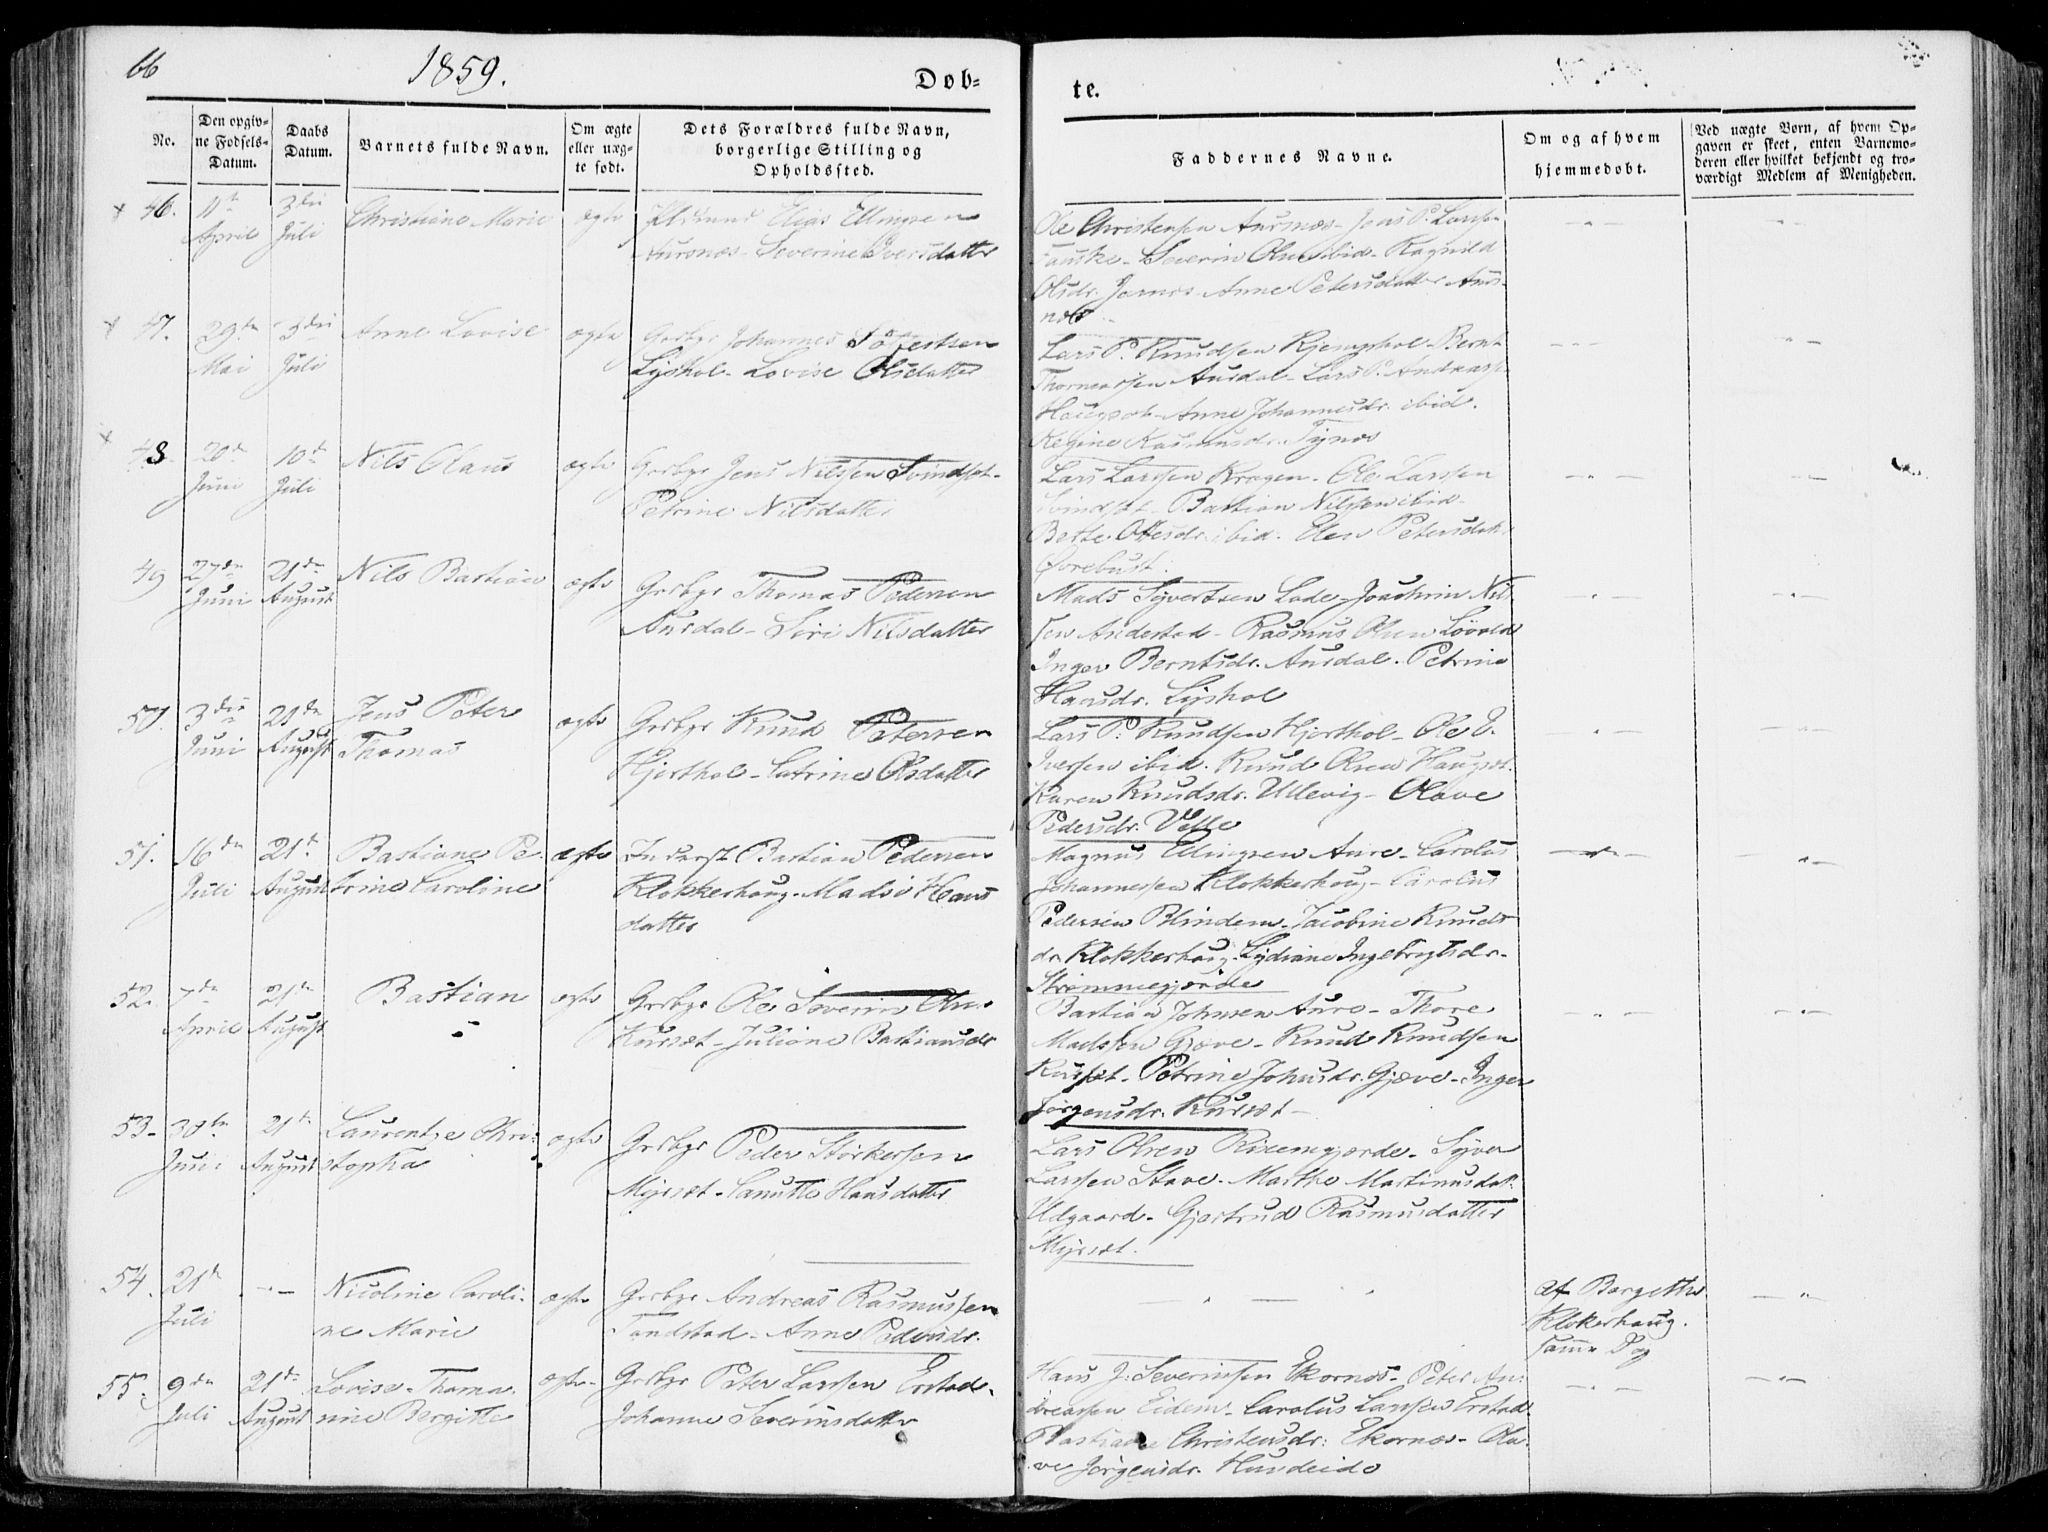 66
1859.
Døb-
te.
No.
Den opgiv-
ne Fødsels-
Datum.
Daabs
Datum.
Barnets fulde Navn.
Om ægte
eller uæg-
te født.
Dets Forældres fulde Navn,
borgerlige Stilling og
Opholdssted.
Faddernes Navne.
Om og af hvem
hjemmedøbt.
Ved uægte Børn, af hvem Op-
gaven er skeet, enten Barnemo-
deren eller hvilket bekjendt og tro-
værdigt Medlem af Menigheden.
46. 11te April 3die Juli Christiane Marie ægte
Elias Ellingsen
Aursnæs - Severine Iversdatter
Ole Christensen Aursnæs - Jens P. Larssen
Fauske - Severin Olsen ibid - Ragnild
Olsdr. Jarnes - Anne Petersdatter Aurs-
næs
47. 29de Mai 3die Juli Anne Lovise ægte
Grdbgr Johannes Sjøfertsen
Lyshol - Lovise Olsdatter
Lars P. Knudsen - Bernt
Aursdal - Lars P. Andreass.
Haugset - Anne Johannesdr. ibid.
Regine Rasmusdr. Tynes
48. 20de Juni 10de Juli Nils Olaus ægte
Grdbgr Jens Nilssen Svindset -
Petrine Nilsdatter
Lars Larssen Kragen - Ole Larssen
Svindset - Bastian Nilssen ibid -
Bette Ottesdr. ibid. Elen Petersdatt.
Ørebust.
49 27de Juni 21de August Nils Bastian ægte
Grdbgr Thomas Pedersen
Aursdal - Siri Nilsdatter
Mads Syvertsen Lade - Joachim Nil-
sen Andestad - Rasmus Olsen Løvold
Inger Berntsdr. Aursdal. Petrine
Hansdr. Lyshol
50. 3die Juni 21de August Jens Peter
Thomas ægte
Grdbgr Knud Petersen
Hjorthol - Catrine Olsdatter
Lars P. Knudsen Hjorthol - Ole E.
Iversen ibid. Knud Olsen Haugset.
Karen Knudsdr. Ullevig - Olave
Pedersdr. Velle
51. 16de Juli 21de August Bastiane Pe-
trine Caroline ægte
Inderst Bastian Pedersen
Klokkerhoug - Madsi Hans
datter
Magnus Ellingsen Aure - Carolus
Johannessen Klokkerhoug - Carolus
Pedersen Blindem - Jacobine Knuds
dr. Klokkerhoug - Lydiane Ingebrigtsdr.
Strømmegjerde
52. 7de April 21de August Bastian ægte
Grdbgr Ole Severin Olsen
Kurset - Juliane Bastiansdr
Bastian Johnsen Aure - Thore
Madssen Gjæve - Knud Knudsen
Kurset - Petrine Johnsdr. Gjæve - Inger
Jørgensdr. Kurset -
53 - 30te Juni 21de August Laurentze Chri-
stopha ægte
Grdbgr Peder Størkersen
Myrset - Canutte Hansdatter
Lars Olsen Risemgjerde - Syver
Larssen Stave. Marthe Martinusdat.
Udgaard - Gjertrud Rasmusdatter
Myrset.
54. 21de Juli - - Nicoline Caroli-
ne Marie ægte
Grdbgr Andreas Rasmussen
Tandstad - Anne Pedersdr.
af Bergethe
Klokerhaug.
samme Dag
55. 9de Juli 21de August Lovise Thoma-
sine Bergitte ægte
Grdbgr Peter Larssen Erstad -
Johanne Severinsdatter
Hans J. Severinssen Ekornæs - Peter An-
dreassen Eidem - Carolus Larssen Erstad.
Bastiane Christensdr: Ekornæs - Ola-
ve Jørgensdr. Hundeide